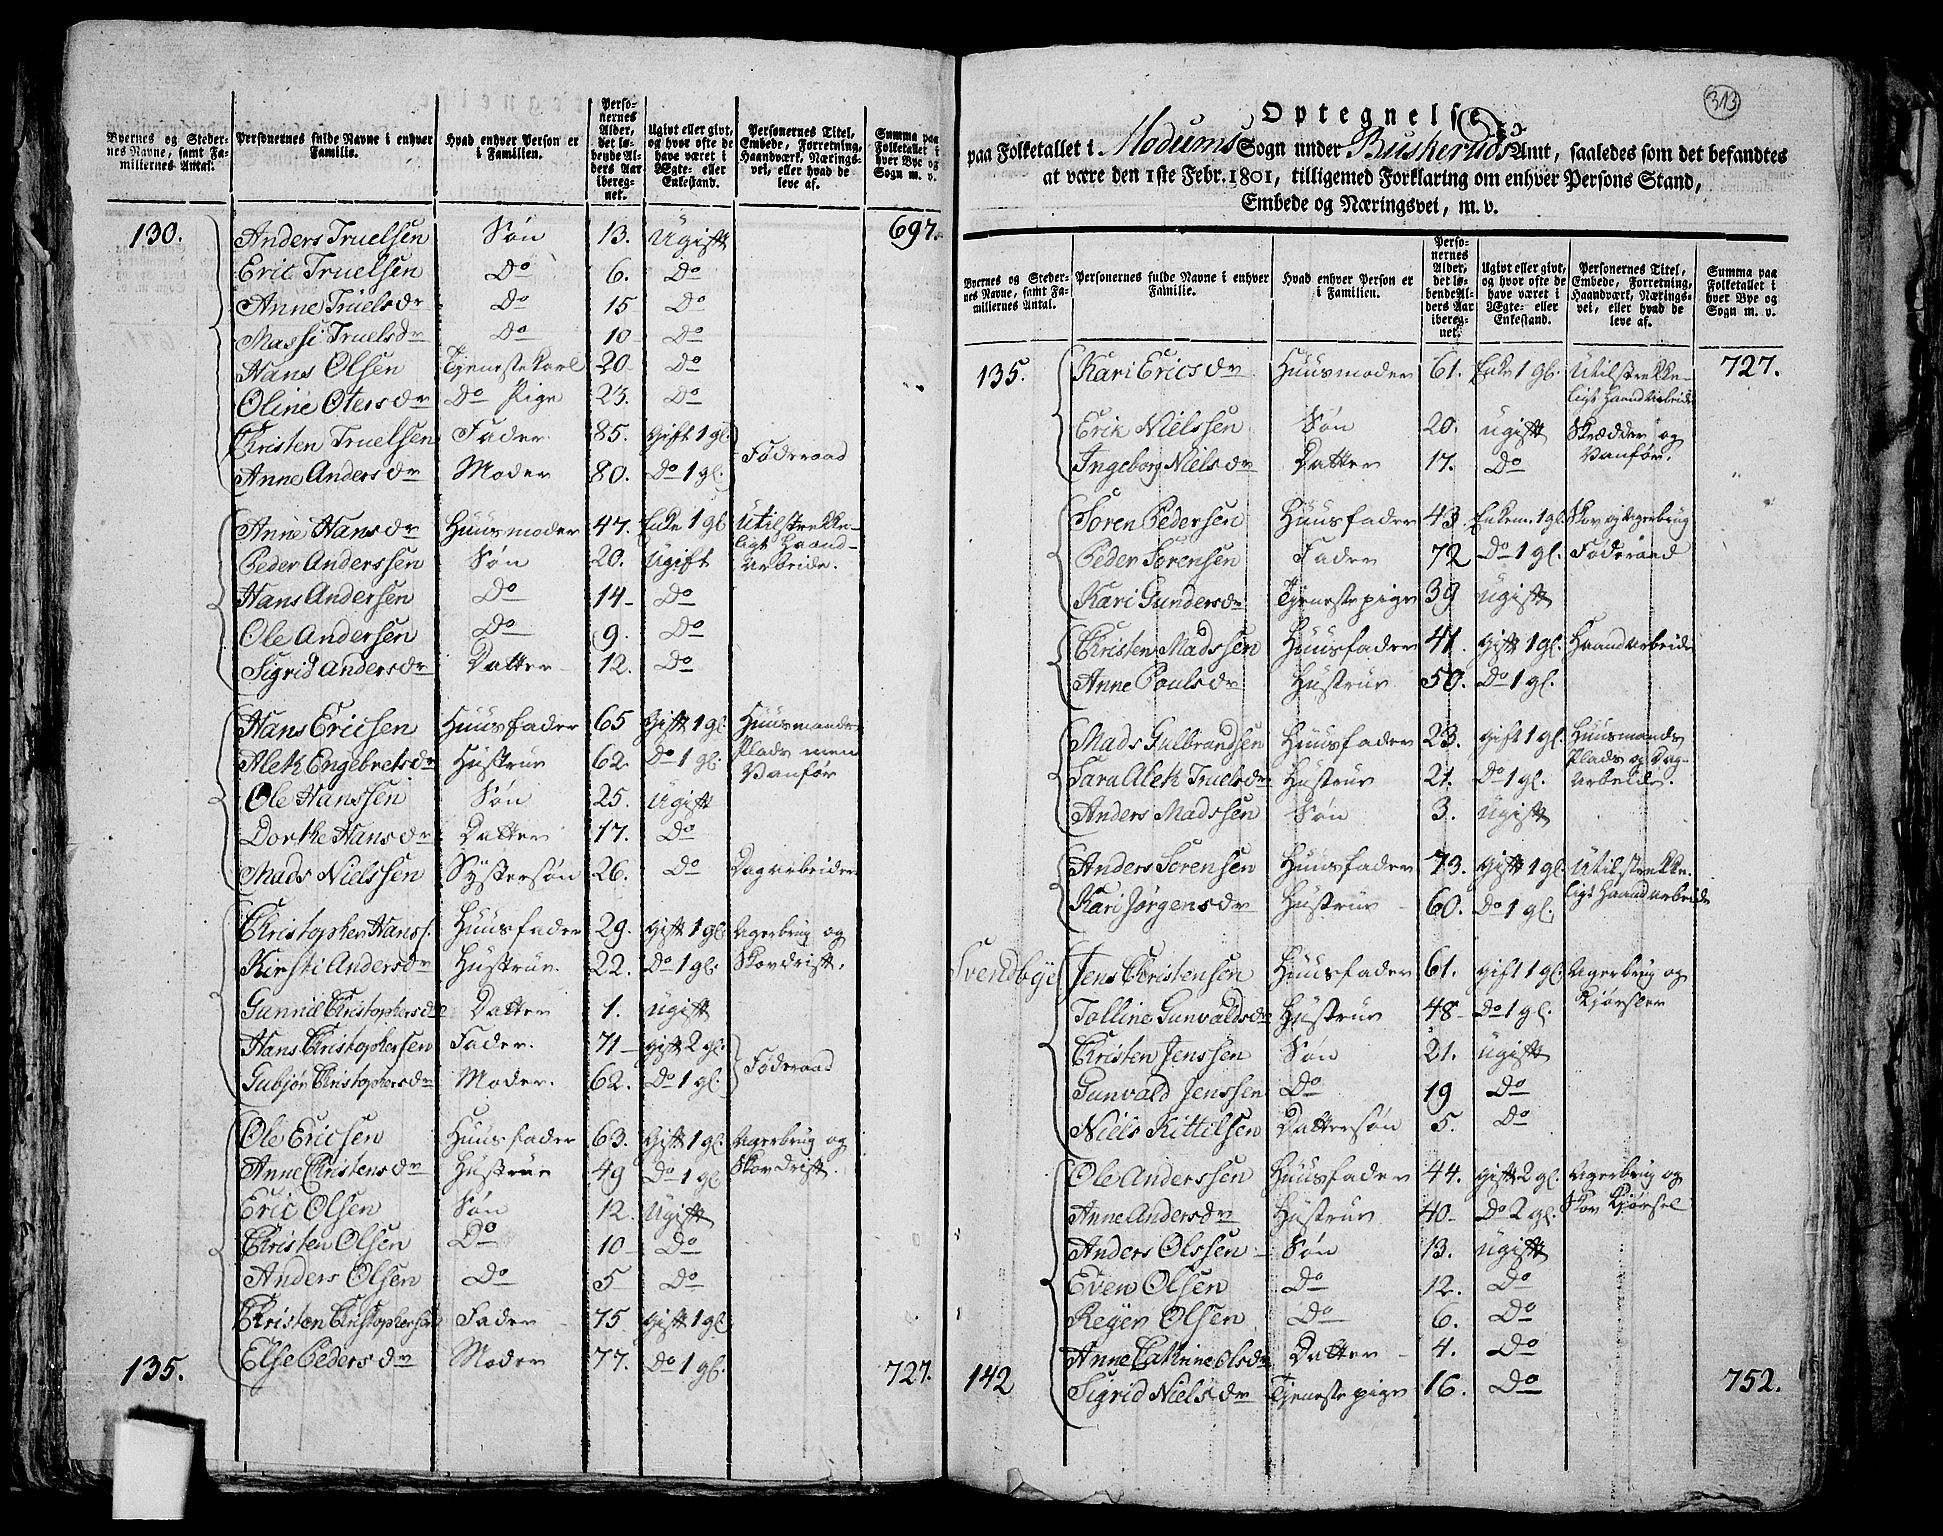 Byernes og Steder- Personernes fulde Navne i enhver Hvad enhver Person er Perso- Ugivt eller givt, Personernes Titel, Summa paa
nes Navne, samt Fa- Familie. i Familien. nernes og hvor ofte de Embede, Forretning, Folketallet i
milliernes Antal. Alder, have været i Haandværk, Nærings- hver Bye og
det lø- Ægte- eller vei, eller hvad de Sogn m. v.
bende Al- Enkestand. leve af.
ders Aar
iberegnet.
130. Anders Truelsen Søn 13. Ugift 697.
Eric Truelsen Do 6. Do
Anne Truelsdr Do 15 Do
Massi Truelsdr Do 10 Do
Hans Olsen Tjenestekarl 20 Do
Oline Otersdr Do Pige 23. Do
Christen Truelsen Fader 85. Gift 1 gl Föderaad
Anne Andersdr Moder 80. Do 1 gl.
Anne Hansdr Huusmoder 47. Enke 1 gl Utilstrekke-
ligt Haand-
Peder Anderssen Søn 20. Ugift arbeide.
Hans Andersen Do 14 Do
Ole Andersen Do 9. Do
Sigrid Andersdr Datter 12. Do
Hans Ericsen Huusfader 65 Gift 1 gl Huusmands
Alek Engebretsdr Hustrue 62. Do 1 gl. Plads men
Vanför
Ole Hanssen Søn 25. Ugift
Dorthe Hansdr Datter 17. Do
Mads Nielssen Systersøn 26. Do Dagarbeider
Christopher Hanss. Huusfader 29. Gift 1 gl Agerbrug og
Kirsti Andersdr Hustrue. 22. Do 1 gl. Skovdrift.
Gunnild Christophersdr Datter 1. Ugift
Hans Christophersen Fader. 71 gift 2 gl. Föderaad
Gubjør Christophersdr Moder. 62. Do 1 gl.
Ole Ericsen Huusfader 63. Gift 1 gl. Agerbrug og
Anne Christensdr Hustrue 49 Do 1 gl Skovdrift.
Eric Olsen Søn 12. Ugift
Christen Olsen Do 10 Do
Anders Olsen Do 5 Do
Christen Christophersen Fader 75 Gift 1 gl
135. Else Pedersdr Moder 77. Do 1 gl. 727.
313
Optegnelse
paa Folketallet i Modums Sogn under Buskeruds Amt, saaledes som det befandtes
at være den 1ste Febr. 1801, tilligemed Forklaring om enhver Persons Stand,
Embede og Næringsvei, m. v.
Byernes og Steder- Personernes fulde Navne i enhver Hvad enhver Person er Perso- Ugivt eller givt, Personernes Titel, Summa paa
nes Navne, samt Fa- Familie. i Familien. nernes og hvor ofte de Embede, Forretning, Folketallet i
milliernes Antal. Alder, have været i Haandværk, Nærings- hver Bye og
det lø- Ægte- eller vei, eller hvad de Sogn m. v.
bende Al- Enkestand. leve af.
ders Aar
iberegnet.
135. Kari Ericsdr Huusmoder 61. Enke 1 gl. Utilstrekke- 727.
ligt Haandarbeide
Erik Nielssen Søn 20. ugift Skrædder og
Ingeborg Nielsdr Datter 17. Do Vanför.
Søren Pedersen Huusfader 43 Enkem. 1 gl. Skov og Agerbrug
Peder Sørensen Fader 72 Do 1 gl. Föderaad
Kari Gundersdr Tjenestepige 39 ugift
Christen Madssen Huusfader 41. Gift 1 gl. Haandarbeide
Anne Poulsdr Hustrue 50. Do 1 gl.
Mads Gulbrandsen Huusfader 23. Gift 1 gl. Huusmands
Plads og Dag-
Sara Alek Truelsdr Hustrue 21. Do 1 gl. arbeide.
Anders Madssen Søn 3. ugift
Anders Sørensen Huusfader 73. Gift 1 gl. Utilstrekke-
Kari Jørgensdr Hustrue 60. Do 1 gl. ligt Haandarbeide
Svendbye Jens Christensen Huusfader 61. Gift 1 gl. Agerbrug og
Kjörsler
Tolline Gunvaldsdr Hustrue 48 Do 1 gl.
Christen Jenssen Søn 21. ugift
Gunvald Jenssen Do 19 Do
Niels Kittilsen Dattersøn 5. Do
Ole Anderssen Huusfader 44. gift 2 gl. Agerbrug og
Anne Andersdr Hustrue 40 Do 2 gl. Skov Kjörsel
Anders Olssen Søn 13. ugift
Even Olsen Do 12. Do
Reyer Olsen Do 6. Do
Anne Cathrine Olsdr Datter 4. Do
142 Sigrid Nielsdr Tjenestepige 16. Do 752.